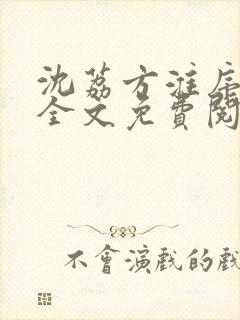 沈荔方淮序
全文免費閱
不會演戲的戲